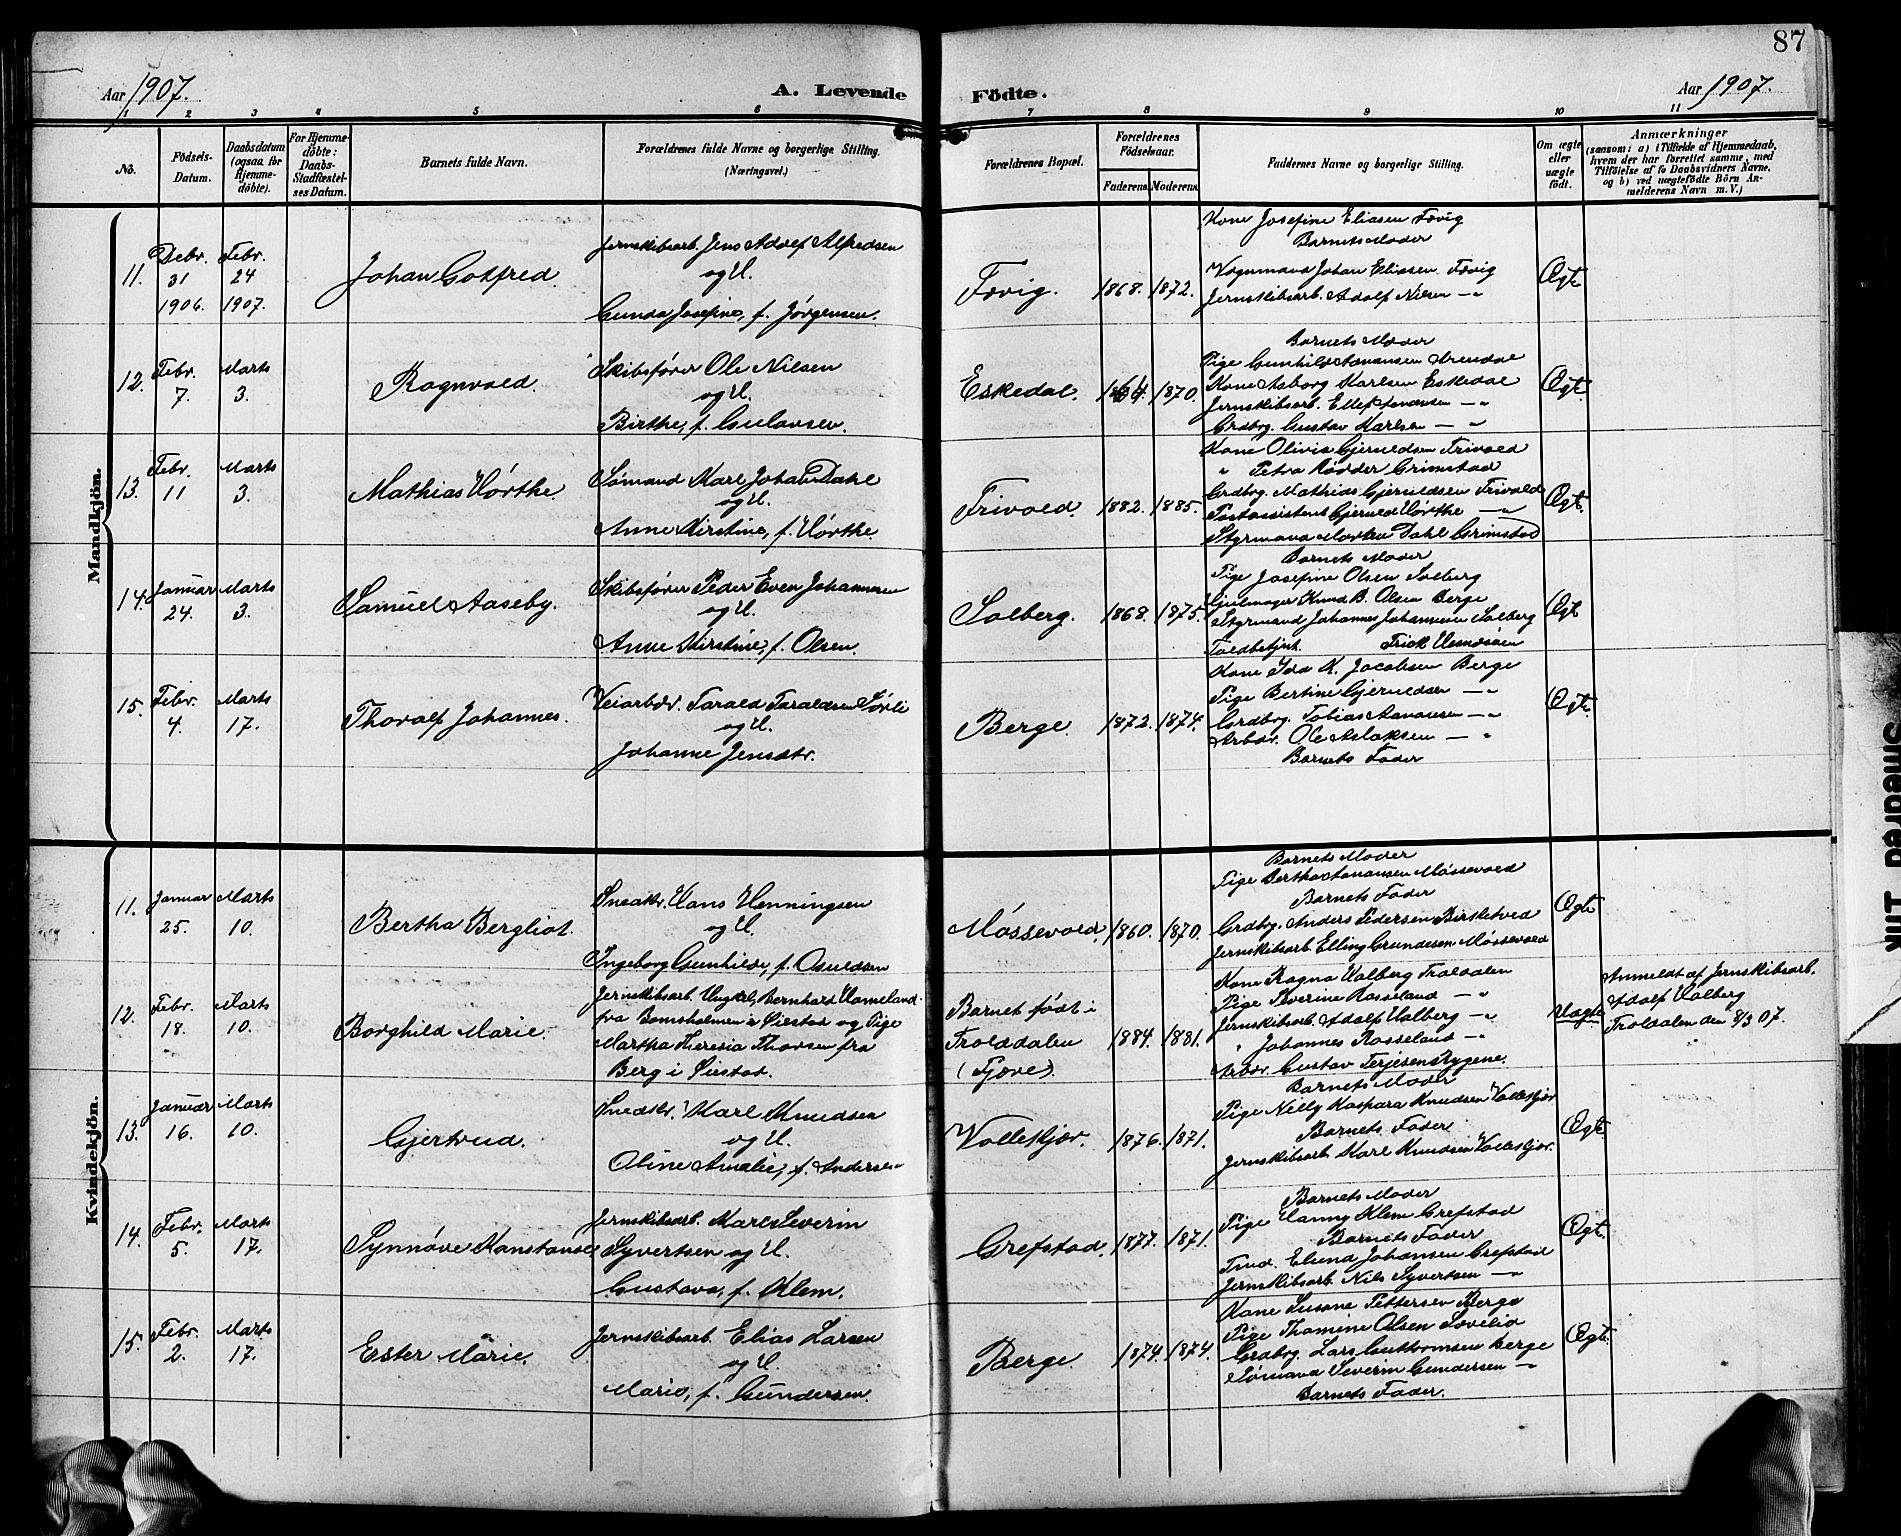 87
Aar 1907. A. Levende Födte. Aar 1907.
1 2 3 4 5 6 7 8 9 10 11
No.
Födsels-
Datum.
Daabsdatum
(ogsaa for
Hjemme-
döbte).
For Hjemme-
döbte:
Daabs-
Stadfæstel-
ses Datum.
Barnets fulde Navn.
Forældrenes fulde Navne og borgerlige Stilling.
(Næringsvei.)
Forældrenes Bopæl.
Forældrenes
Födselsaar.
Faderens. Moderens.
Faddernes Navne og borgerlige Stilling.
Om ægte
eller
uægte
födt.
Anmærkninger
(saasom: a) i Tilfælde af Hjemmedaab,
hvem der har forrettet samme, med
Tilföielse af to Daabsvidners Navne,
og b) ved uægtefödte Börn An-
melderens Navn m. V.)
Mandkjön.
11. Debr. 31 1906. Febr. 24 1907.
Johan Gotfred.
Jernskibsarb. Jens Adolf Alfredsen
og H.
Gunda Josefine, f. Jørgensen.
Fevig. 1868. 1872.
Kone Josefine Eliasen Fevig
Barnets Moder
Vognmand Johan Eliasen Fevig
Jernskibsarb. Adolf Nilsen — "
Ægte
12. Febr. 7. Marts 3.
Ragnvald
Skibsfører Ole Nilsen
og H.
Birthe, f. Gulovsen.
Eskedal. 1870.
Barnets Moder
Pige Gunhild Aanansen Arendal
Kone Aasborg Karlsen Eskedal
Jernskibsarb. Ellef Aanansen — "
Grdbrg. Gustav Karlsen — "
Ægte
13. Febr. 11 Marts 3.
Mathias Hörthe
Sømand Karl Johan Dahl
og H.
Anne Kirstine, f. Hörthe
Frivold. 1882. 1885.
Kone Olivia Gjeruldsen Frivold
" Petra Rödder Grimstad
Grdbrg. Mathias Gjeruldsen Frivold
Postassistent Gjeruld Hörthe — "
Styrmand Morten Dahl Grimstad
Ægte.
14. Januar 24. Marts 3.
Samuel Aaseby.
Skibsfører Peder Even Johannesen
og H.
Anne Kirstine, f. Olsen.
Solberg. 1868. 1875.
Barnets Moder
Pige Josefine Olsen Solberg
Knud B. Olsen Berge
Styrmand Johannes Johannesen Solberg
Toldbetjent.
Ægte
15. Febr. 4. Marts 17.
Thoralf Johannes.
Veiarbdr. Tarald Taraldsen Sörli
og H.
Johanne Jensdtr.
Berge. 1872. 1874.
Kone Ida K. Jacobsen Berge
Pige Bertine Gjeruldsen — "
Grdbrg. Tobias Aanonsen — "
Arbdr. Ole Aslaksen — "
Barnets Fader
Ægte
Kvindekjön.
11. Januar 25. Marts 10.
Bertha Bergliot.
Snedkr. Hans Henningsen
og H.
Ingeborg Gunhilde, f. Osuldsen
Mössevold. 1860. 1870.
Barnets Moder
Pige Bertha Aanansen Mössevold
Barnets Fader
Grdbrg. Anders Pedersen Birketved
Jernskibsarb. Elling Gundersen Mössevold
Ægte
12. Febr. 18. Marts 10.
Borghild Marie.
Jernskibsarb. Ungkl. Bernhard Hommeland
fra Bomsholmen i Öiestad og Pige
Martha Theresia Thorsen fra
Berg i Öiestad.
Barnet født i
Trolddalen
(Fjære). 1884. 1881.
Kone Ragna Valberg Trolddalen
Pige Severine Rosseland — "
Jernskibsarb. Adolf Valberg — "
" Johannes Rosseland — "
Arbdr. Gustav Terjesen Rygene.
Uægte
Anmeldt af Jernskibsarb.
Adolf Valberg
Trolddalen den 8/3 07.
13. Januar 16. Marts 10.
Gjertrud.
Snedkr. Karl Knudsen
og H.
Oline Amalie, f. Andersen
Vollekjær. 1876. 1871.
Barnets Moder
Pige Nielly Kaspara Knudsen Vollekjær
Barnets Fader
Jernskibsarb. Karl Knudsen Vollekjær.
Ægte
14. Febr. 5. Marts 17.
Synnöve Konstanse
Jernskibsarb. Karl Severin
Syvertsen og H.
Gustava, f. Klem.
Grefstad. 1877. 1871.
Barnets Moder
Pige Hanny Klem Grefstad
Barnets Fader
Johansen Grefstad
Jernskibsarb. Nils Syvertsen — "
Ægte.
15. Febr. 2. Marts 17.
Ester Marie.
Jernskibsarb. Elias Larsen
og H.
Marie, f. Gundersen.
Berge 1874. 1874.
Kone Susane Pettersen Berge
Pige Thomine Olsen
Grdbrg. Lars Guttormsen Berge
Sömand Severin Gundersen — "
Barnets Fader.
Ægte.